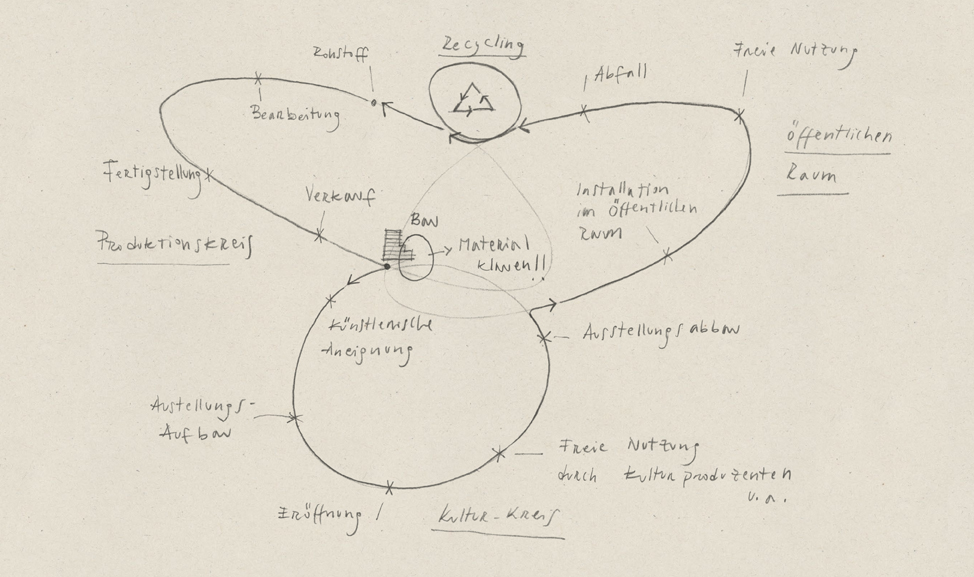 Recycling
Rohstoff
Freie Nutzung
Abfall
Bearbeitung
öffentlichen
Raum
Fertigstellung
Verkauf
Installation
im öffentlichen
Raum
Bau
Produktionskreis
Material
klauen!!
Künstlerische
Aneignung
Ausstellungsabbau
Austellungs-
Aufbau
Freie Nutzung
durch Kulturproduzenten
u.a.
Eröffnung
Kultur-Kreis